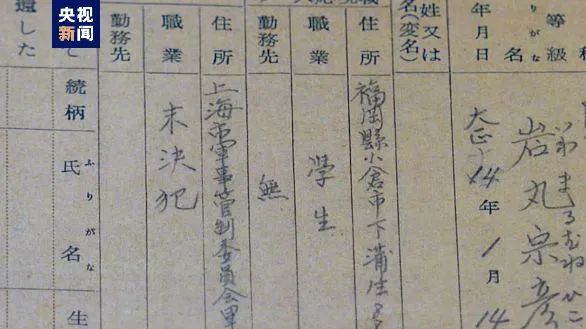 央视新闻
等級
りがな
名
いわまるむねひこ
岩丸宗彦
年月日
大正14年1月14
姓又は
名(変名)
住所
福岡縣小倉市下蒲生
職業
學生
勤務先
無
住所
上海市軍事管制委員会
職業
未決犯
勤務先
と
続柄
ふりがな
氏名
生
還した